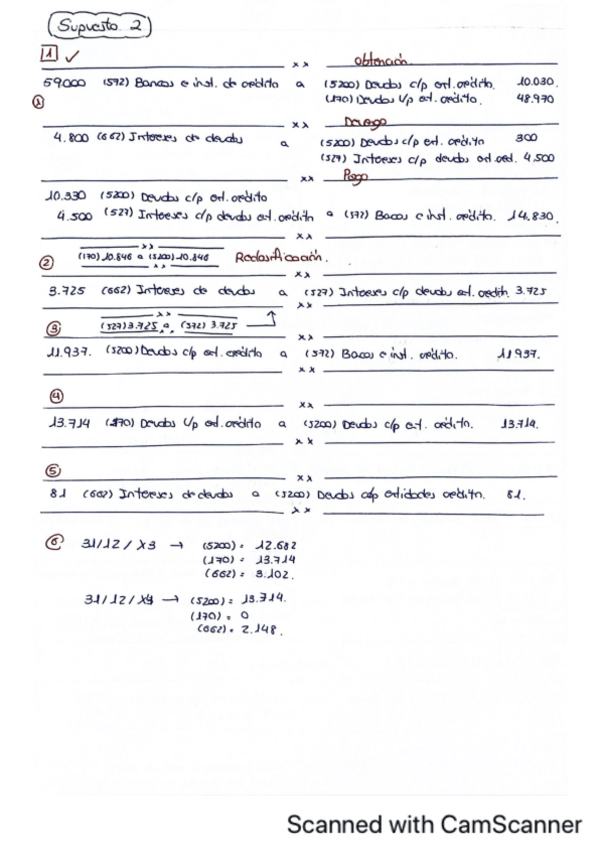 Supuesto 2
1 ✓
xx obtención
59000 (572) Bancos e inst. de crédito a (5200) Deudas c/p ent. crédito. 10.030.
① (170) Deudas l/p ent. crédito. 48.970
xx Devengo
4.800 (662) Intereses de deudas a (5200) Deudas c/p ent. crédito 300
(527) Intereses c/p deudas ent. cred. 4.500
xx Pago
10.330 (5200) Deudas c/p ent. crédito
4.500 (527) Intereses c/p deudas ent. crédito a (572) Bacos e inst. crédito. 14.830.
xx
xx
② (170) 10.846 a (5200) 10.846 Reclasificación.
xx
xx
3.725 (662) Intereses de deudas a (527) Intereses c/p deudas ent. crédit. 3.725
xx
xx
③ (527) 3.725 a (572) 3.725
xx
11.937. (5200) Deudas c/p ent. crédito a (572) Bacos e inst. crédito. 11937.
xx
④
xx
13.714 (170) Deudas l/p ent. crédito a (5200) Deudas c/p ent. crédito. 13.714.
xx
⑤
xx
81 (662) Intereses de deudas a (5200) Deudas c/p entidades crédito. 81.
xx
⑥ 31/12/X3 → (5200) = 12.682
(170) = 13.714
(662) = 3.102.
31/12/X4 → (5200) = 13.714.
(170) = 0
(662) = 2.148.
Scanned with CamScanner